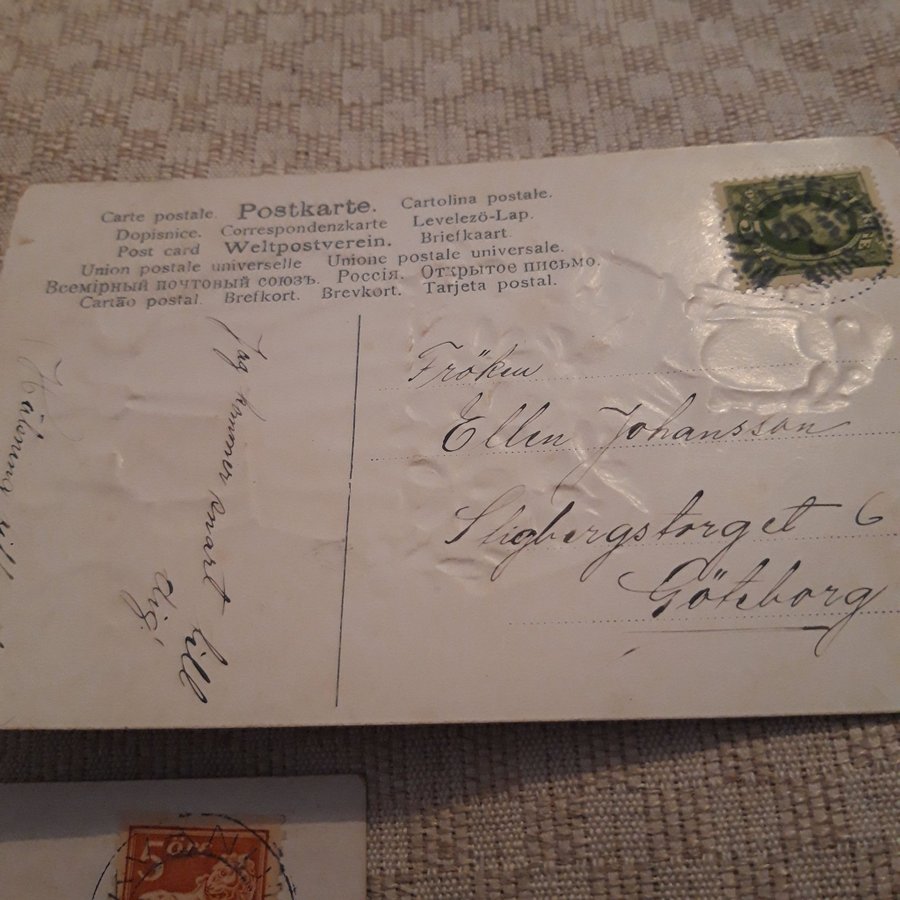 Carte postale. Postkarte. Cartolina postale.
Dopisnice. Correspondenzkarte Levelezö-Lap.
Post card Weltpostverein. Briefkaart.
Union postale universelle Unione postale universale.
Всемірный почтовый союзъ. Россія. Открытое письмо.
Cartão postal. Brefkort. Brevkort. Tarjeta postal.
Jag kommer snart till
dig.
Fröken
Ellen Johansson
Stigbergstorget 6
Göteborg
5 öre